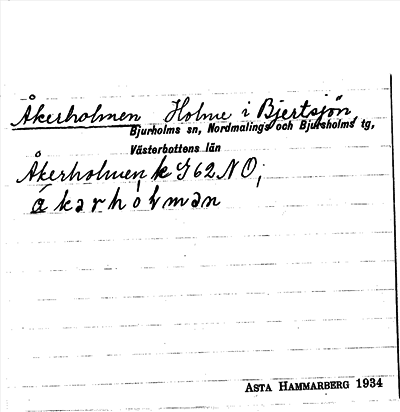 Åkerholmen Holme i Bjertsjön,
Bjurholms sn, Nordmalings och Bjurholms tg,
Västerbottens län
Åkerholmen k I 62 NO;
ákarhólman
ASTA HAMMARBERG 1934